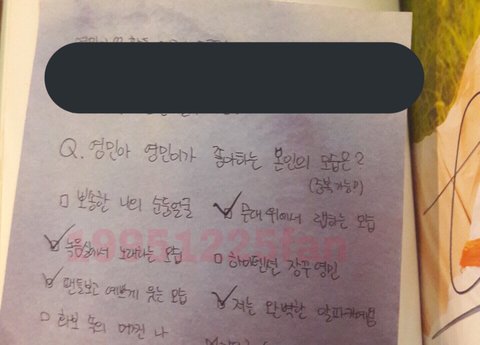 Q. 영민아 영민이가 좋아하는 본인의 모습은?
(중복가능!)
□ 뽀송한 나의 순둥얼굴
☑ 무대 위에서 랩하는 모습
☑ 녹음실에서 노래하는 모습
□ 하이텐션 장꾸영민
☑ 팬들보고 예쁘게 웃는 모습
☑ 저는 완벽한 알파카예욤
□ 화보 속의 머찐 나
19951225fan